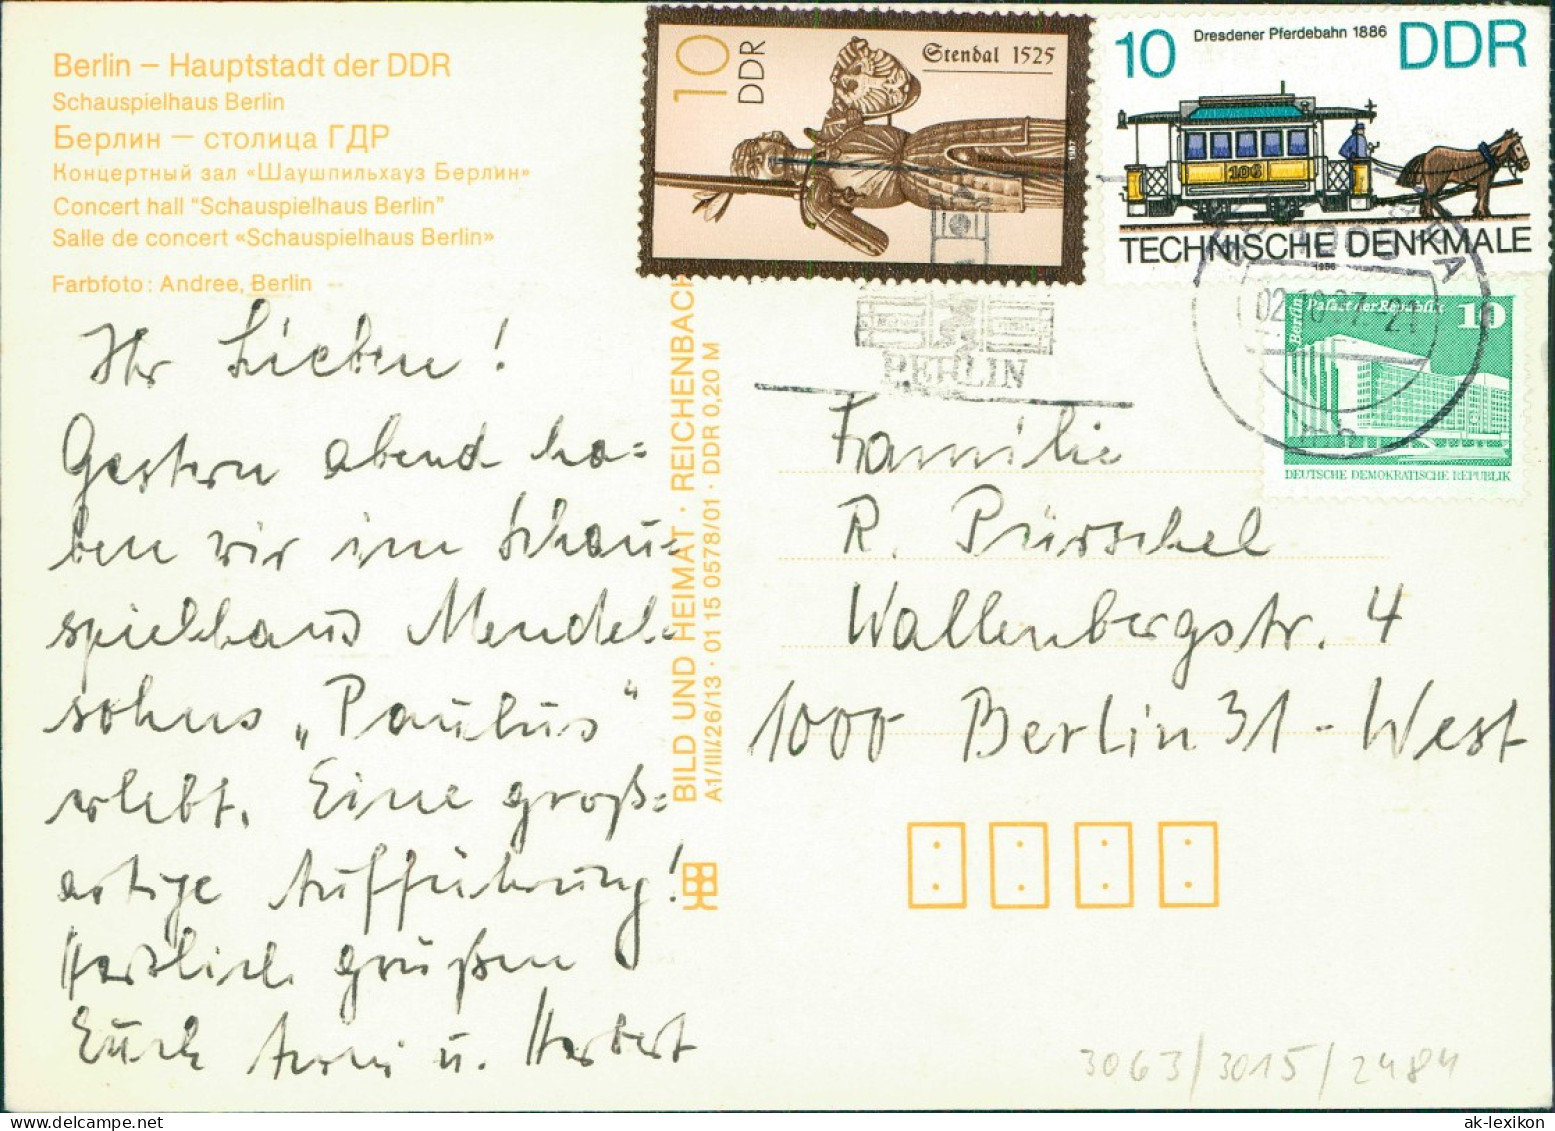 Berlin – Hauptstadt der DDR
Schauspielhaus Berlin
Берлин — столица ГДР
Концертный зал «Шаушпильхауз Берлин»
Concert hall "Schauspielhaus Berlin"
Salle de concert «Schauspielhaus Berlin»
Farbfoto: Andree, Berlin
Ihr Lieben!
Gestern abend ha=
ben wir im Schau=
spielhaus Mendel=
sohns „Paulus"
erlebt. Eine groß=
artige Aufführung!
Herzlich grüßen
Euch Anni u. Herbert
BILD UND HEIMAT · REICHENBACH
A1/III/26/13 · 01 15 0578/01 · DDR 0,20 M
10
DDR
Stendal 1525
10
Dresdener Pferdebahn 1886
DDR
106
TECHNISCHE DENKMALE
1986
Berlin
Palast der Republik
10
DEUTSCHE DEMOKRATISCHE REPUBLIK
BERLIN
Familie
R. Pürschel
Wallenbergstr. 4
1000 Berlin 31 - West
3063/3015/2484
ak-lexikon.com